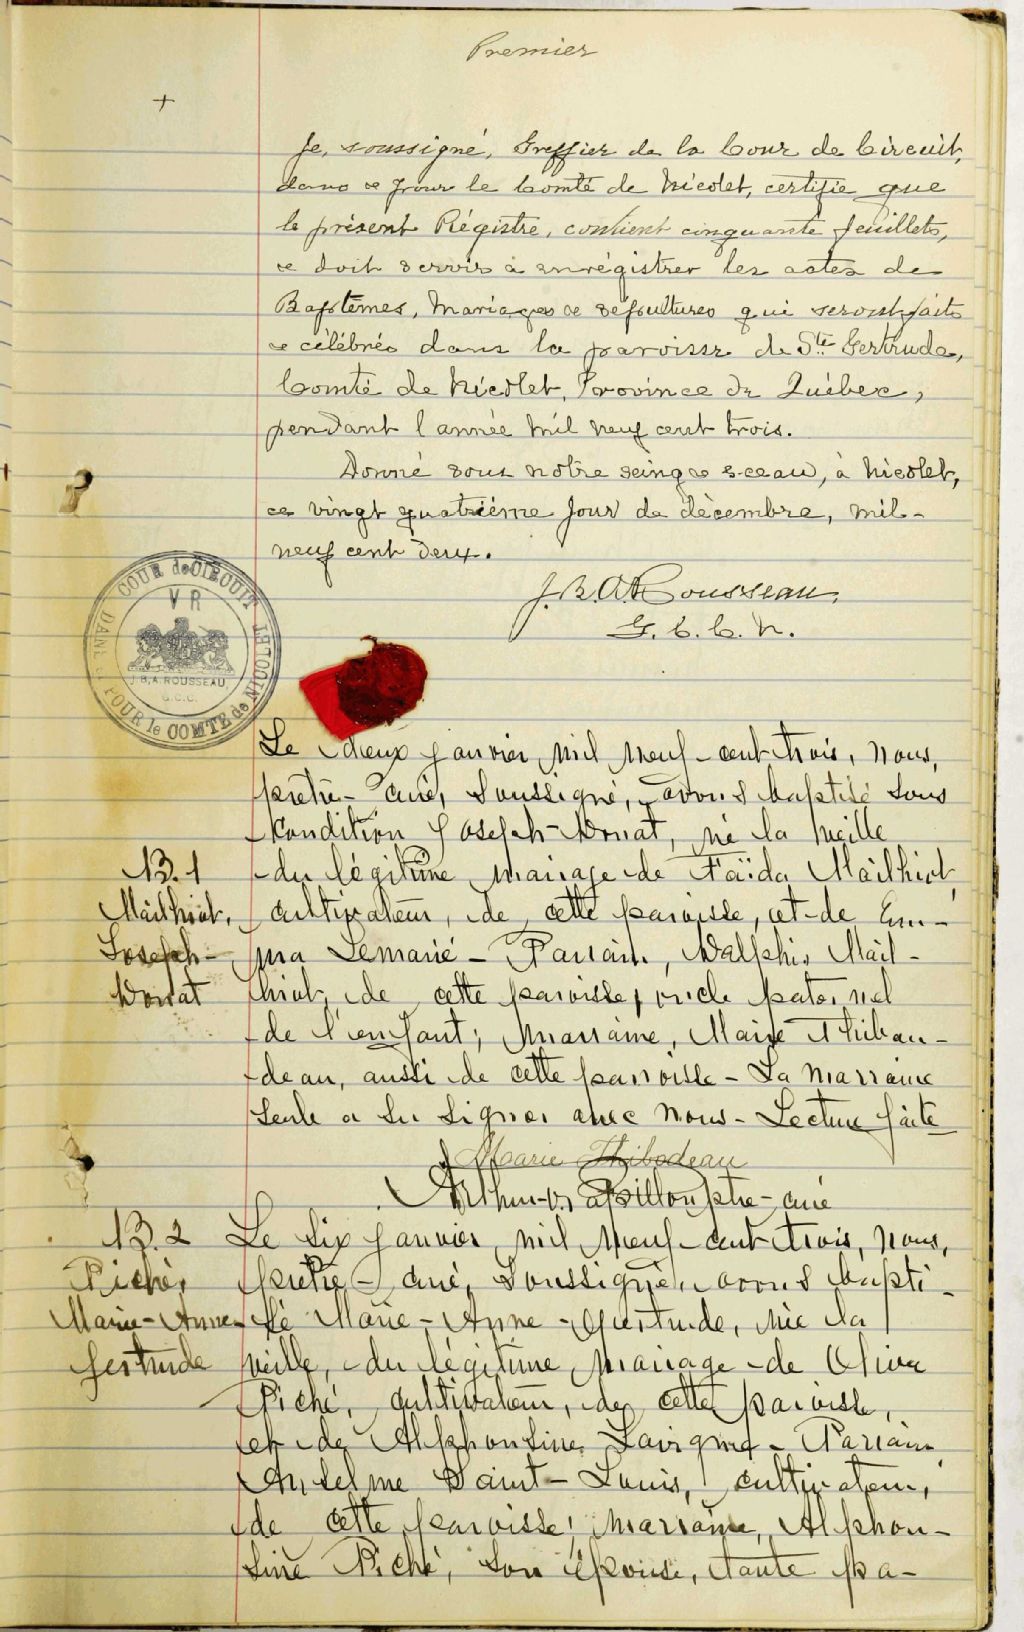 Premier
+
Je, soussigné, Greffier de la Cour de Circuit,
dans et pour le Comté de Nicolet, certifie que
le présent Régistre, contient cinquante feuillets,
et doit servir à enrégistrer les actes de
Baptêmes, Mariages et sépultures qui seront faits
et célébrés dans la paroisse de Ste Gertrude,
Comté de Nicolet, Province de Québec,
pendant l'année mil neuf cent trois.
Donné sous notre seing et sceau, à Nicolet,
ce vingt quatrième jour de décembre, mil-
neuf cent deux.
J.B.A. Rousseau,
G.C.C.N.
COUR de CIRCUIT
DANS et POUR le COMTE de NICOLET
V R
J.B.A. ROUSSEAU,
G.C.C.
Le deux janvier mil neuf-cent trois, nous,
prêtre-curé, soussigné, avons baptisé sous
condition Joseph-Donat, né la veille
B.1
du légitime mariage de Faïda Mailhiot,
Mailhiot,
cultivateur, de cette paroisse, et de Em-
Joseph-
ma Lemarié - Parrain, Adelphis Mail-
Donat
hiot, de cette paroisse, oncle paternel
de l'enfant; marraine, Marie Thibau-
deau, aussi de cette paroisse - La marraine
seule a su signer avec nous - Lecture faite
Marie Thibodeau
Arthur-O. Papillon ptre-curé
B.2
Le six janvier mil neuf-cent trois, nous,
Piché,
prêtre-curé, soussigné, avons bapti-
Marie-Anne-
sé Marie-Anne-Gertrude, née la
Gertrude
veille, du légitime mariage de Oliva
Piché, cultivateur, de cette paroisse,
et de Alphonsine Lavigne - Parrain
Anselme Saint-Louis, cultivateur,
de cette paroisse; marraine, Alphon-
sine Piché, son épouse, tante pa-